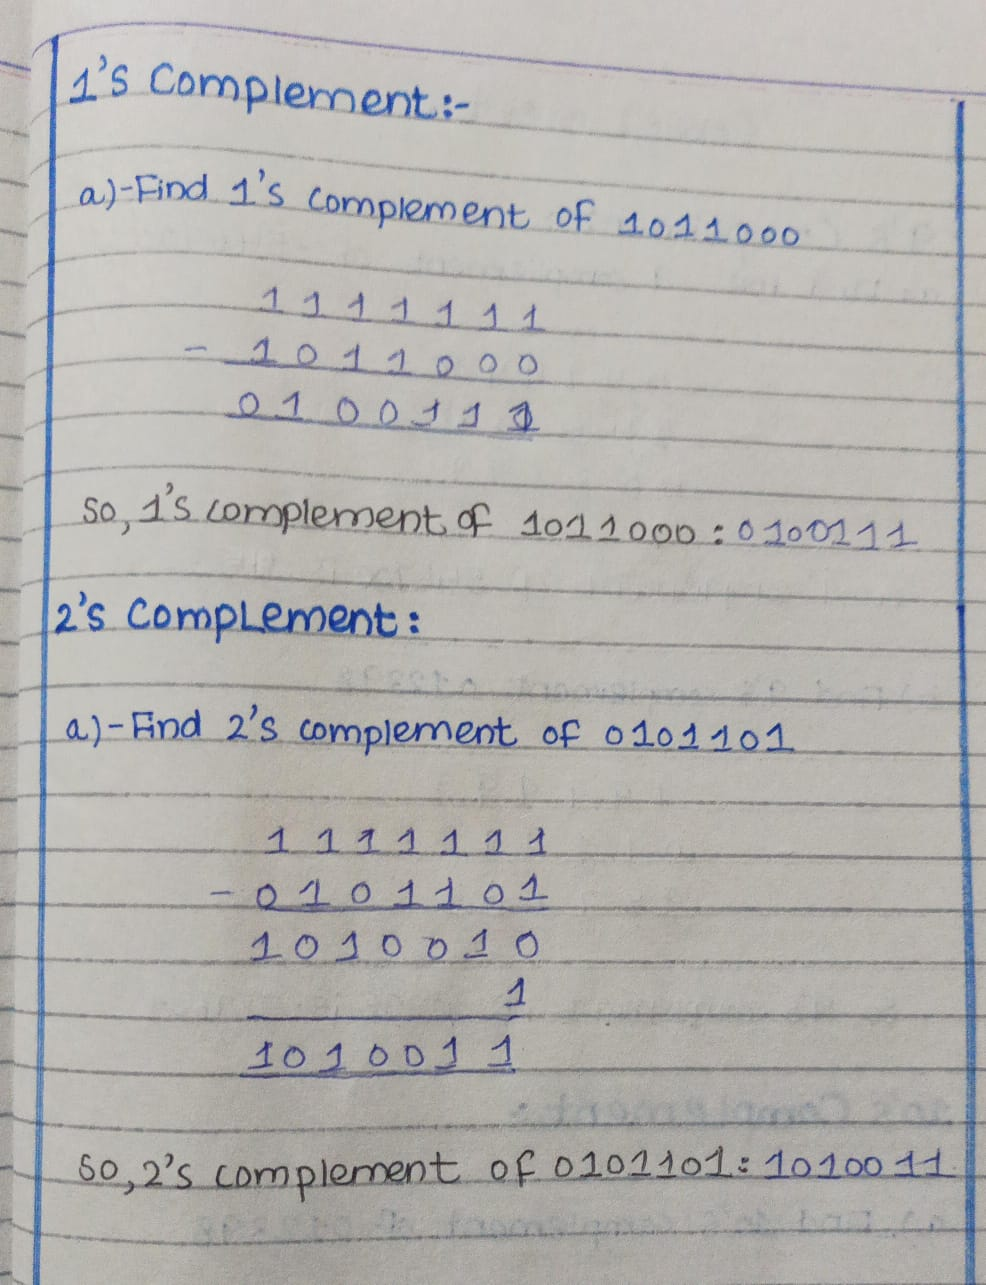 1's Complement:-
a)-Find 1's complement of 1011000
1 1 1 1 1 1 1
- 1 0 1 1 0 0 0
0 1 0 0 1 1 1
So, 1's complement of 1011000 : 0100111
2's Complement:
a)-Find 2's complement of 0101101
1 1 1 1 1 1 1
- 0 1 0 1 1 0 1
1 0 1 0 0 1 0
1
1 0 1 0 0 1 1
So, 2's complement of 0101101: 1010011.